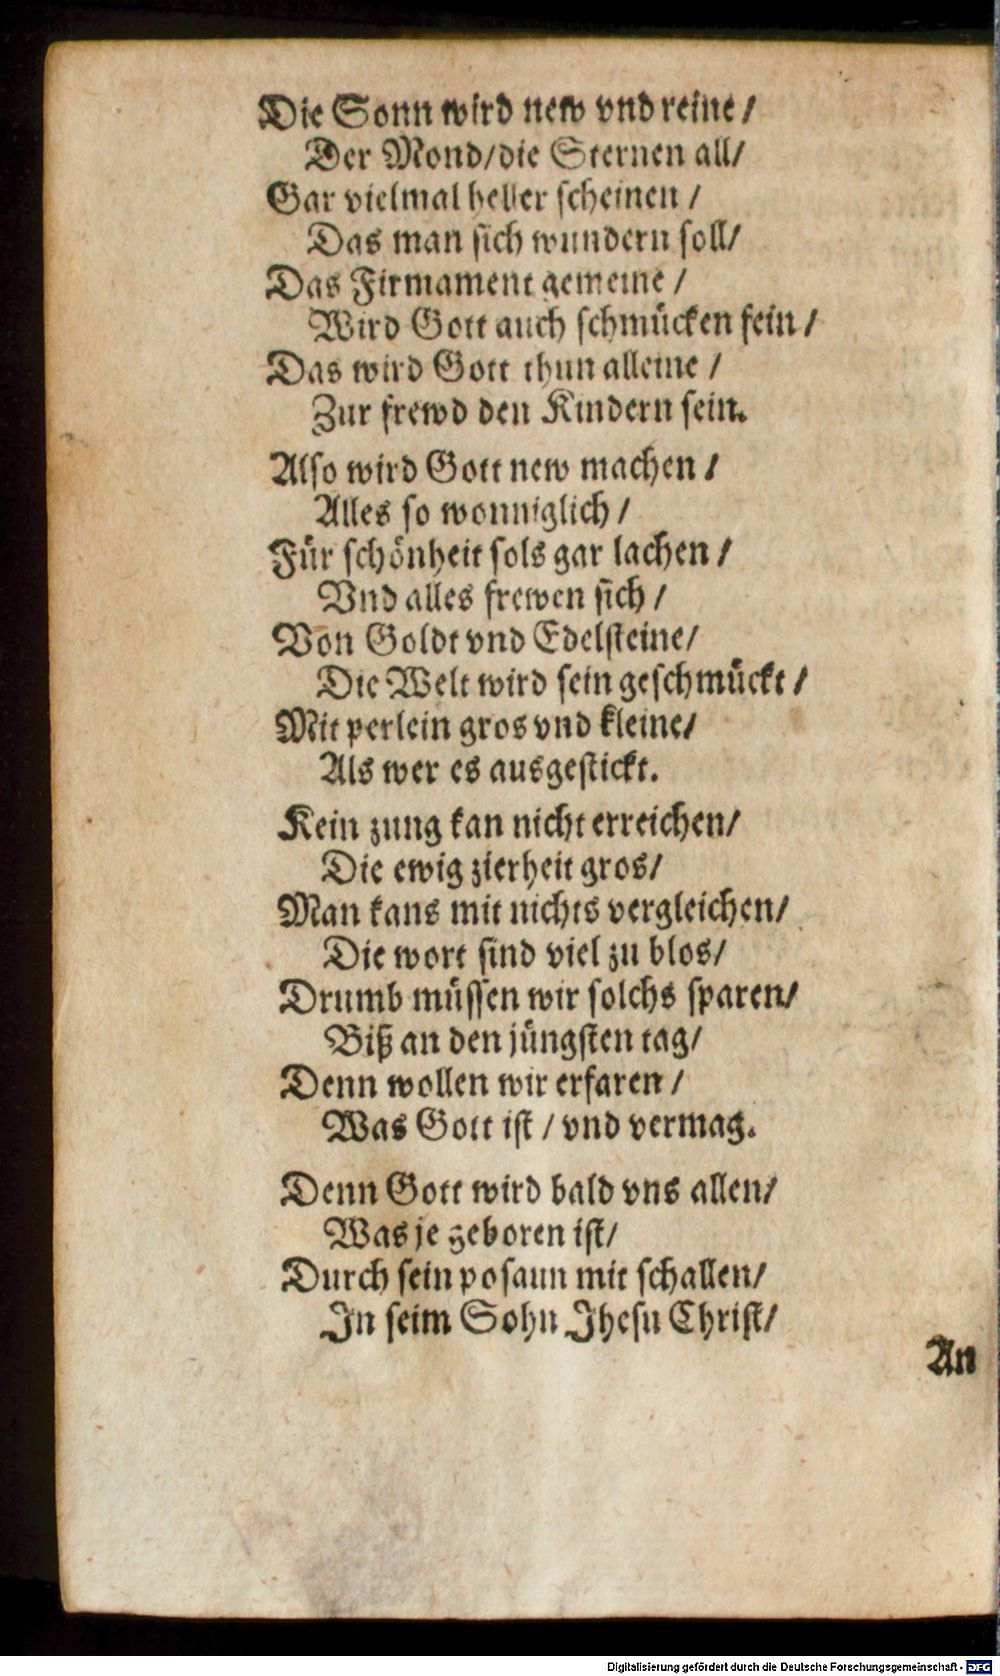 Die Sonn wird new vnd reine /
Der Mond/die Sternen all/
Gar vielmal heller scheinen /
Das man sich wundern soll/
Das Firmament gemeine /
Wird Gott auch schmücken fein /
Das wird Gott thun alleine /
Zur frewd den Kindern sein.
Also wird Gott new machen /
Alles so wonniglich /
Für schönheit sols gar lachen /
Vnd alles frewen sich /
Von Goldt vnd Edelsteine/
Die Welt wird sein geschmückt /
Mit perlein gros vnd kleine/
Als wer es ausgestickt.
Kein zung kan nicht erreichen/
Die ewig zierheit gros/
Man kans mit nichts vergleichen/
Die wort sind viel zu blos/
Drumb müssen wir solchs sparen/
Biß an den jüngsten tag/
Denn wollen wir erfaren /
Was Gott ist / vnd vermag.
Denn Gott wird bald vns allen/
Was je geboren ist/
Durch sein posaun mit schallen/
In seim Sohn Jhesu Christ/
An
Digitalisierung gefördert durch die Deutsche Forschungsgemeinschaft - DFG